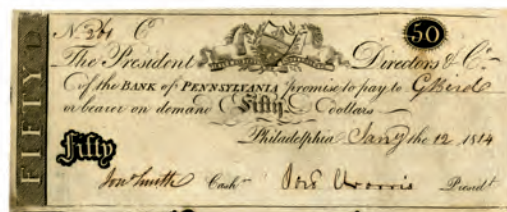 FIFTY D
No C 50
The President Directors & Co.
of the BANK of PENNSYLVANIA promise to pay to G Bird
or bearer on demand Fifty dollars
Philadelphia Jany the 12 1814
Fifty
Jon Smith Cashr Presidt